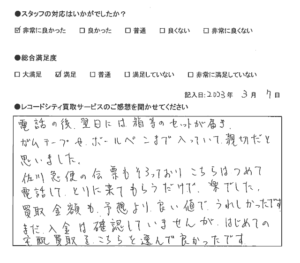 ●スタッフの対応はいかがでしたか？
☑非常に良かった □良かった □普通 □良くない □非常に良くない
●総合満足度
□大満足 ☑満足 □普通 □満足していない □非常に満足していない
記入日:2003年 3月 7日
●レコードシティ買取サービスのご感想を聞かせてください
電話の後、翌日には箱等のセットが届き、
ガムテープ、ボールペンまで入っていて、親切だと
思いました。
佐川急便の伝票もそろっており、こちらはつめて
電話して、とりに来てもらうだけで、楽でした。
買取金額も、予想より良い値で、うれしかったです
まだ、入金は確認していませんが、はじめての
宅配買取を、こちらを選んで良かったです